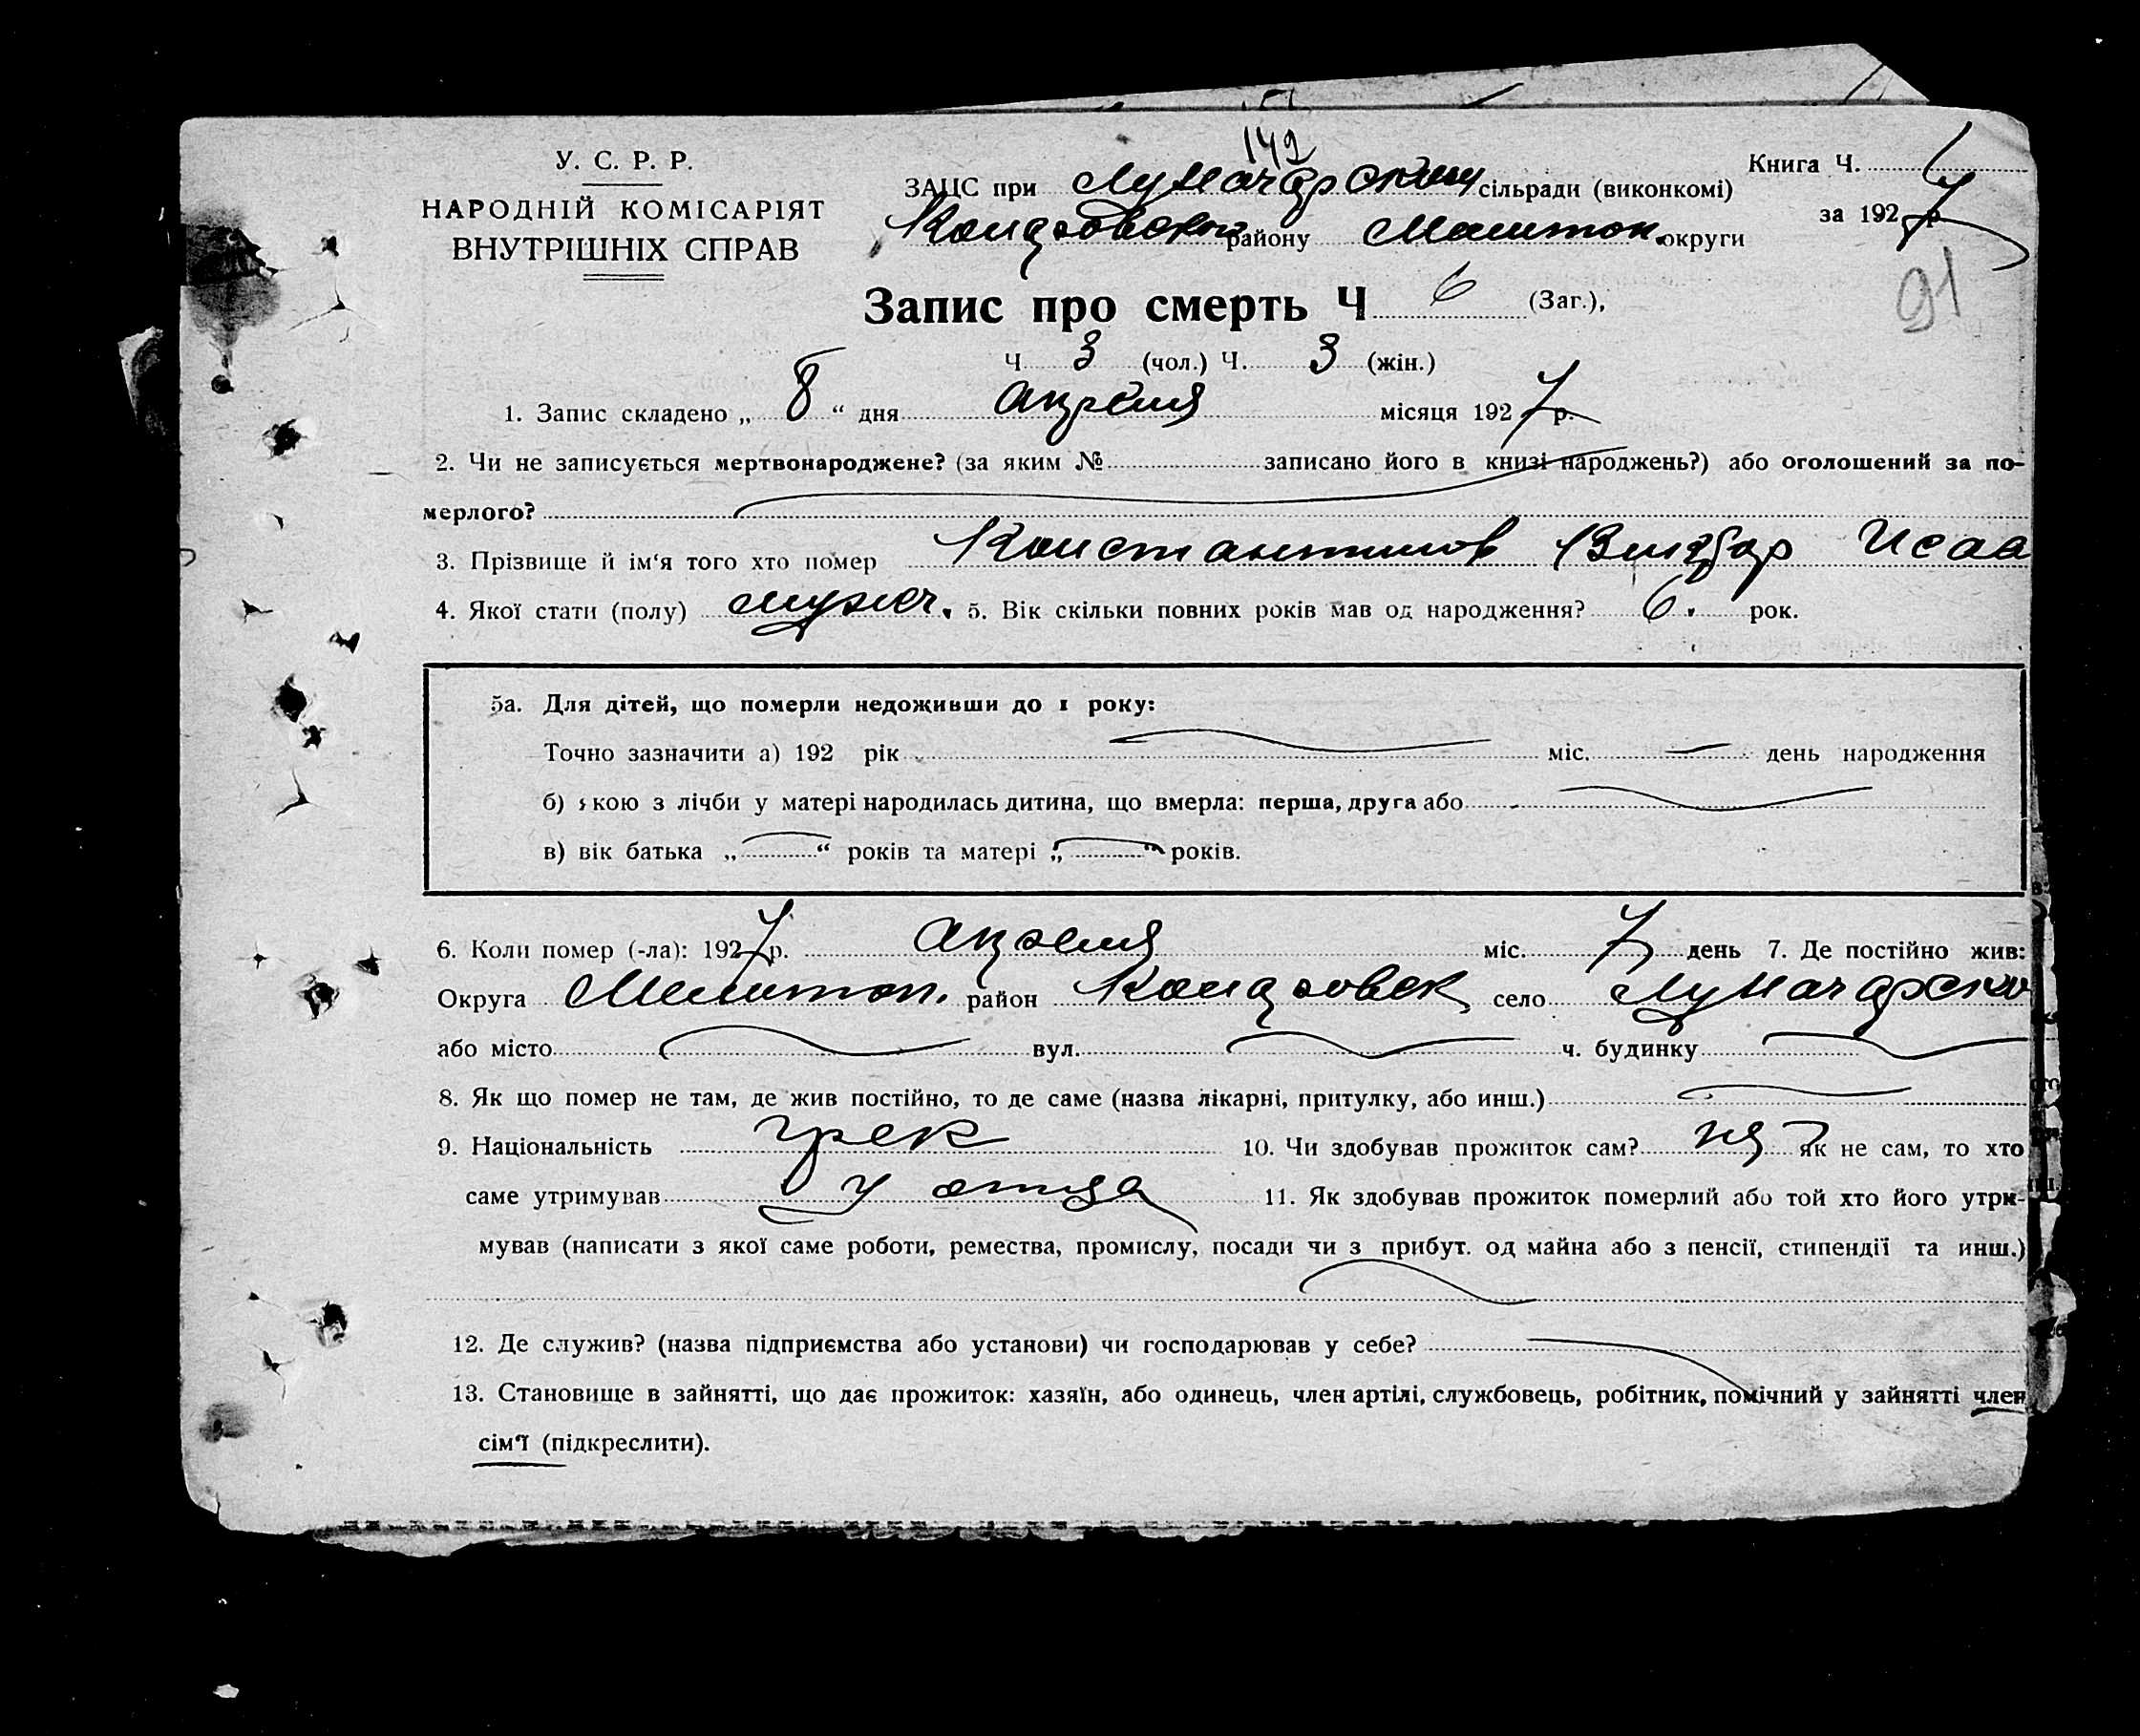 142
У. С. Р. Р.
НАРОДНІЙ КОМІСАРІЯТ
ВНУТРІШНІХ СПРАВ
ЗАГС при Луначарском сільради (виконкомі)
району Мелитоп. округи
Книга Ч.
за 1927 р.
91
Запис про смерть Ч 6 (Заг.),
Ч 3 (чол.) Ч. 3 (жін.)
1. Запис складено „ 8 “ дня апреля місяця 1927 р.
2. Чи не записується мертвонароджене? (за яким № записано його в книзі народжень?) або оголошений за по-
мерлого?
3. Прізвище й ім‘я того хто помер Константинов Исаа
4. Якої стати (полу) мужч. 5. Вік скільки повних років мав од народження? 6. рок.
5а. Для дітей, що померли недоживши до 1 року:
Точно зазначити а) 192 рік міс. день народження
б) якою з лічби у матері народилась дитина, що вмерла: перша, друга або
в) вік батька „ “ років та матері „ “ років.
6. Коли помер (-ла): 1927 р. апреля міс. 7 день 7. Де постійно жив:
Округа Мелитоп. район село Луначарско
або місто вул. ч. будинку
8. Як що помер не там, де жив постійно, то де саме (назва лікарні, притулку, або инш.)
9. Національність грек 10. Чи здобував прожиток сам? як не сам, то хто
саме утримував у отца 11. Як здобував прожиток померлий або той хто його утри-
мував (написати з якої саме роботи, ремества, промислу, посади чи з прибут. од майна або з пенсії, стипендії та инш.)
12. Де служив? (назва підприємства або установи) чи господарював у себе?
13. Становище в зайнятті, що дає прожиток: хазяїн, або одинець, член артілі, службовець, робітник, помічний у зайнятті член
сім‘ї (підкреслити).